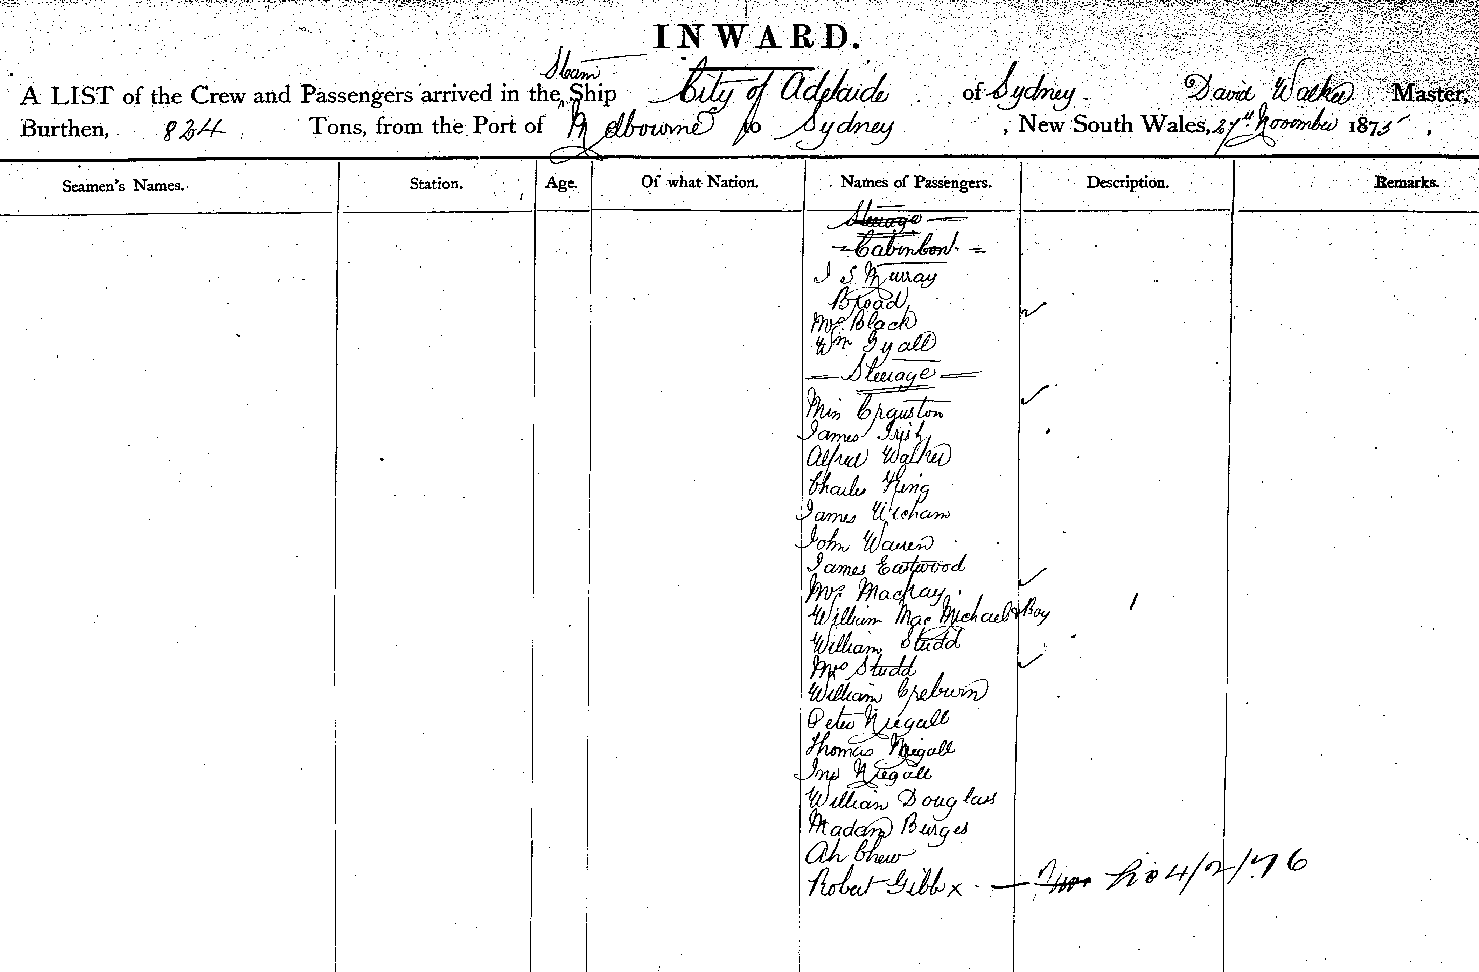 INWARD.
Steam
A LIST of the Crew and Passengers arrived in the Ship City of Adelaide of Sydney David Walker Master,
Burthen, 824 Tons, from the Port of Melbourne to Sydney, New South Wales, 27th November 1875,
Seamen's Names. Station. Age. Of what Nation. Names of Passengers. Description. Remarks.
Steerage
Cabin
J S Murray
Broad
Mrs Black
Wm Lyall
Steerage
Miss
James Irish
Alfred Walker
Charles King
James
John Warren
James Eastwood
Mrs Mackay
William MacMichael & Boy
William Studd
Mrs Studd
William
Peter Niegall
Thomas Niegall
Jno Niegall
William Douglass
Madam Burges
Ah Chew
Robert Gibb x — 4/2/76